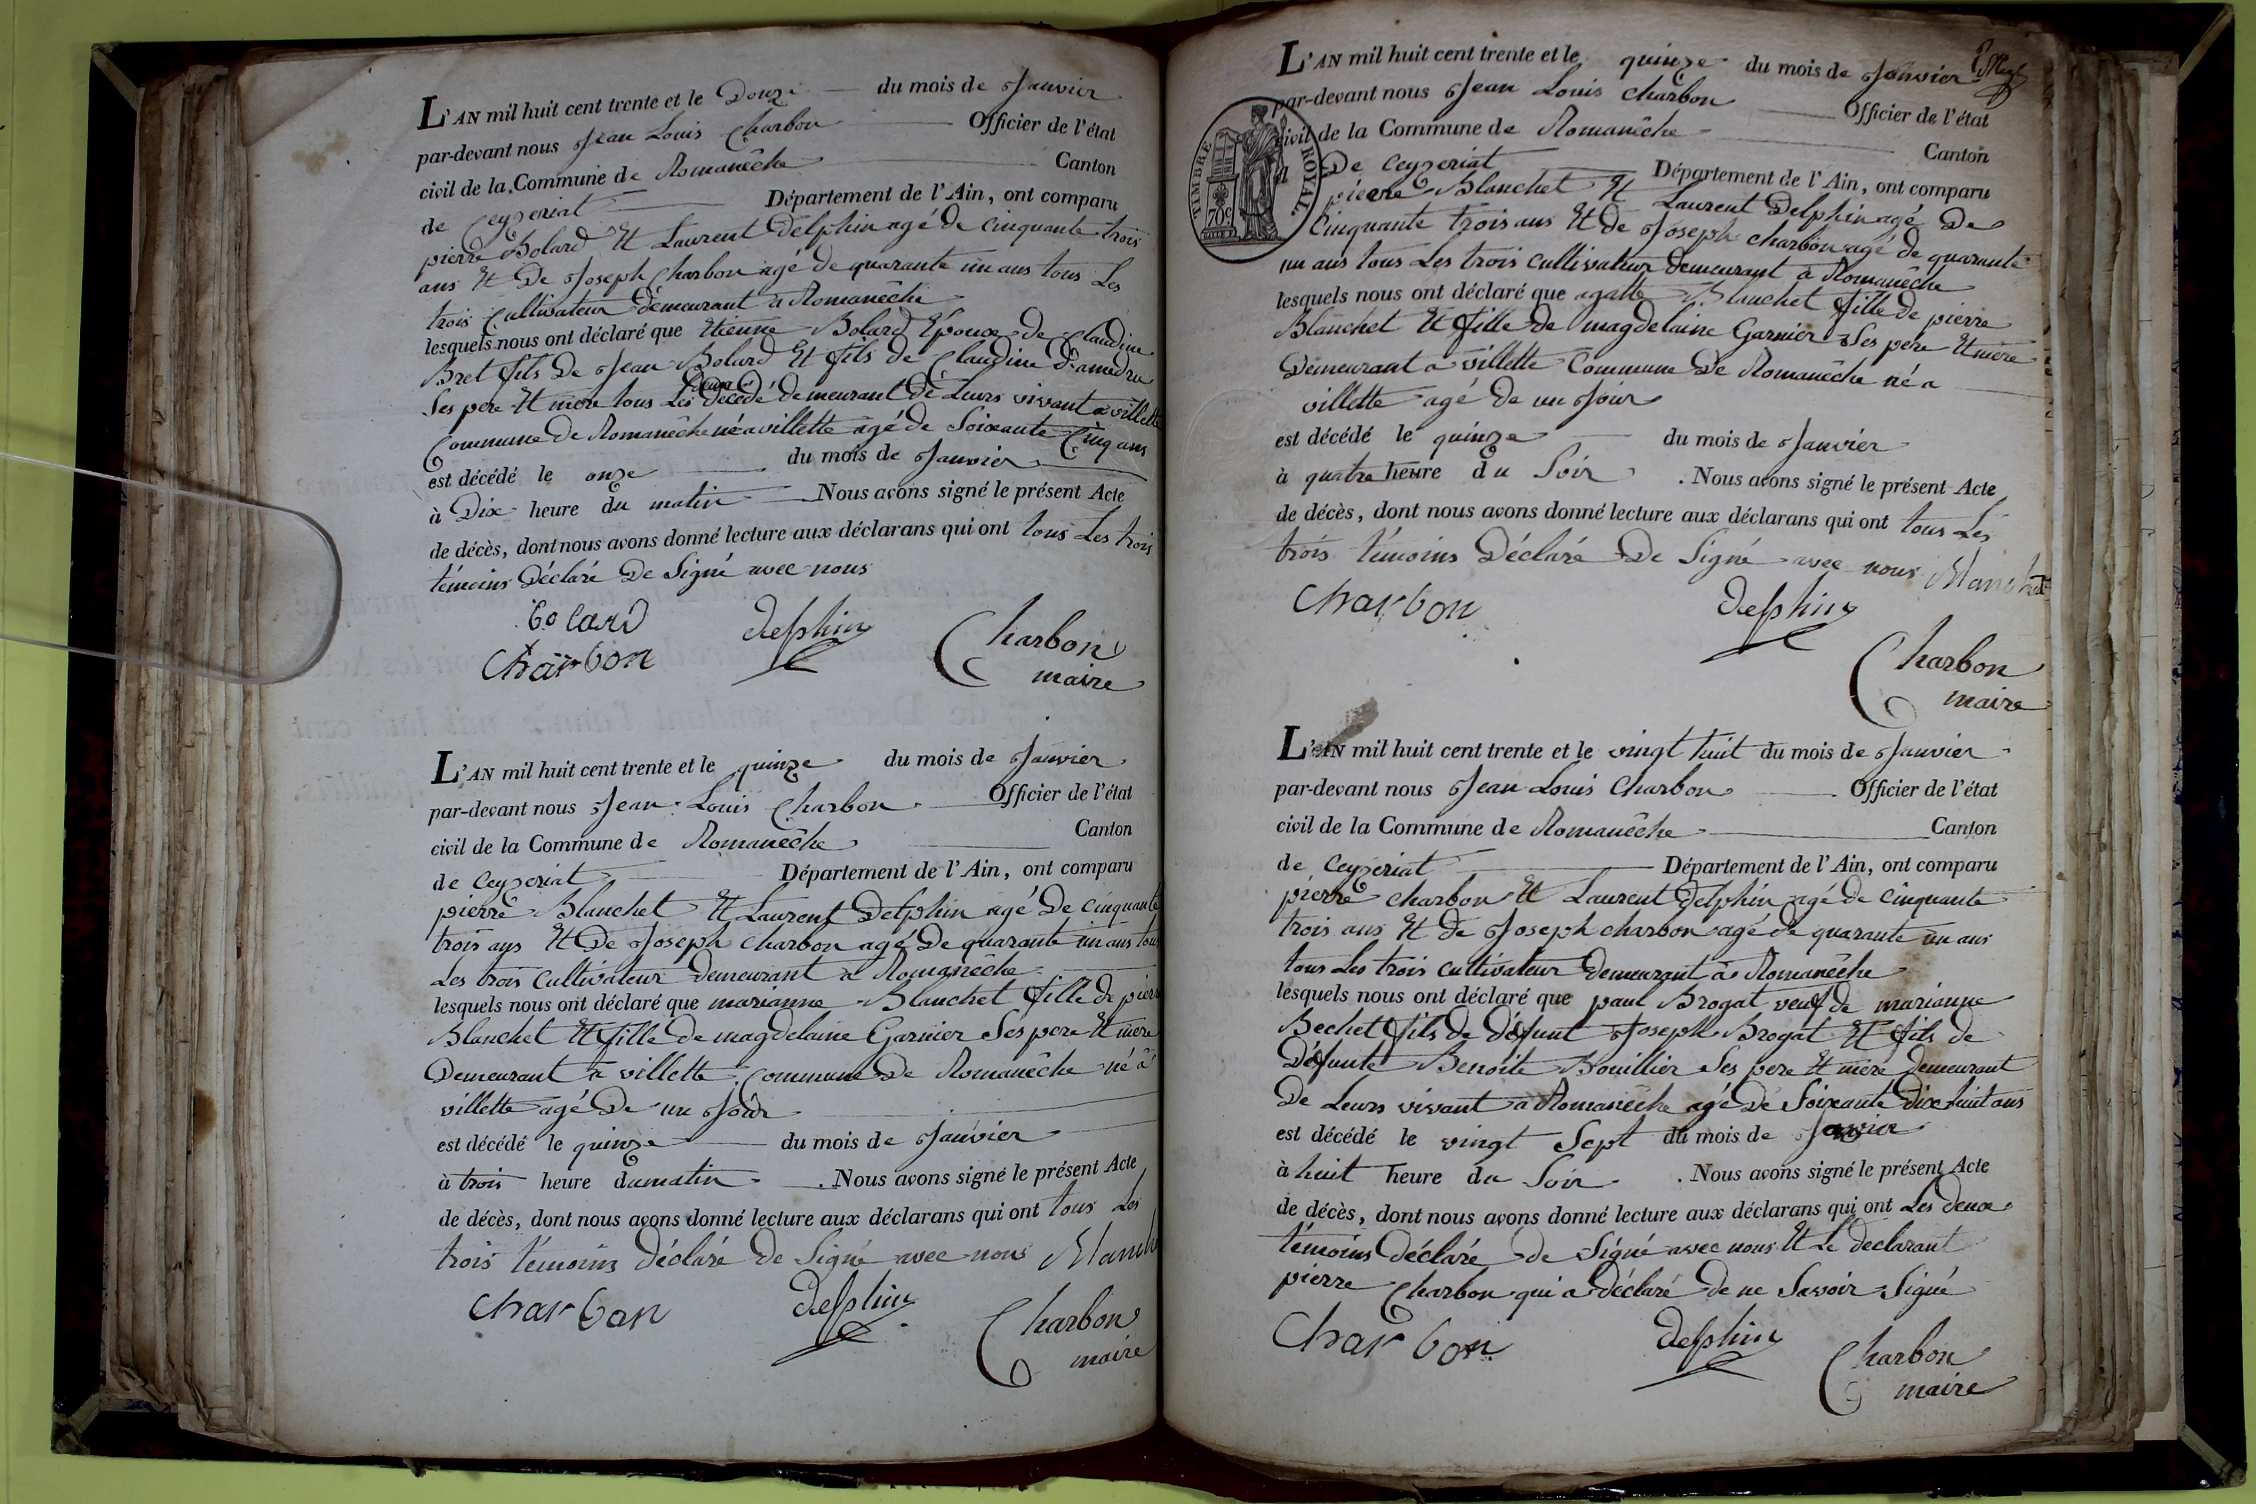 L'AN mil huit cent trente et le Douze du mois de Janvier
par-devant nous Jean Louis Charbon Officier de l'état
civil de la Commune de Romanêche Canton
de Ceyzeriat Département de l'Ain, ont comparu
pierre Bolard Et Laurent Delphin agé de cinquante trois
ans Et De Joseph Charbon agé de quarante un ans tous Les
trois Cultivateur Demeurant a Romanêche
lesquels nous ont déclaré que Etienne Bolard Epoux de Claudine
Bret fils De Jean Bolard Et fils de Claudine Damedru
Ses pere Et mere tous Les deux Décédé demeurant De Leurs vivant a villette
Commune De Romanêche né a villette agé de Soixante Cinq ans
est décédé le onze du mois de Janvier
à Dix heure du matin Nous avons signé le présent Acte
de décès, dont nous avons donné lecture aux déclarans qui ont tous Les trois
témoins Déclaré De Signé avec nous
bolard delphin Charbon
Charbon maire
L'AN mil huit cent trente et le quinze du mois de Janvier
par-devant nous Jean Louis Charbon Officier de l'état
civil de la Commune de Romanêche Canton
de Ceyzeriat Département de l'Ain, ont comparu
pierre Blanchet Et Laurent Delphin agé De cinquante
trois ans Et De Joseph Charbon agé De quarante un ans tous
Les trois Cultivateur Demeurant a Romanêche
lesquels nous ont déclaré que marianne Blanchet fille De pierre
Blanchet Et fille de magdelaine Garnier Ses pere Et mere
Demeurant a villette Commune De Romanêche né à
villette agé De un Jour
est décédé le quinze du mois de Janvier
à trois heure du matin . Nous avons signé le présent Acte
de décès, dont nous avons donné lecture aux déclarans qui ont tous Les
trois témoins déclaré De Signé avec nous Blanch
Charbon delphin Charbon
maire
L'AN mil huit cent trente et le quinze du mois de Janvier
par-devant nous Jean Louis Charbon Officier de l'état
civil de la Commune de Romanêche Canton
De Ceyzeriat Département de l'Ain, ont comparu
TIMBRE ROYAL.
70c
pierre Blanchet Et Laurent Delphin agé De
Cinquante trois ans Et De Joseph Charbon agé de quarante
un ans tous Les trois Cultivateur Demeurant a Romanêche
lesquels nous ont déclaré que agatte Blanchet fille De pierre
Blanchet Et fille de magdelaine Garnier Ses pere Et mere
Demeurant a villette Commune De Romanêche né a
villette agé De un Jour
est décédé le quinze du mois de Janvier
à quatre heure du Soir . Nous avons signé le présent Acte
de décès, dont nous avons donné lecture aux déclarans qui ont tous Les
trois témoins Déclaré De Signé avec nous Blanchet
Charbon delphin
Charbon
maire
L'AN mil huit cent trente et le vingt huit du mois de Janvier
par-devant nous Jean Louis Charbon Officier de l'état
civil de la Commune de Romanêche Canton
de Ceyzeriat Département de l'Ain, ont comparu
pierre Charbon Et Laurent Delphin agé de cinquante
trois ans Et de Joseph Charbon agé de quarante un ans
tous Les trois Cultivateur Demeurant a Romanêche
lesquels nous ont déclaré que paul Brogat veuf De marianne
Bechet fils de défunt Joseph Brogat Et fils de
Défunte Benoite Bouillier Ses pere Et mere demeurant
De Leurs vivant a Romanêche agé De Soixante Dix huit ans
est décédé le vingt Sept du mois de Janvier
à huit heure du Soir . Nous avons signé le présent Acte
de décès, dont nous avons donné lecture aux déclarans qui ont Les deux
témoins déclaré de Signé avec nous Et Le declarant
pierre Charbon qui a déclaré de ne Savoir Signé
Charbon delphin Charbon
maire